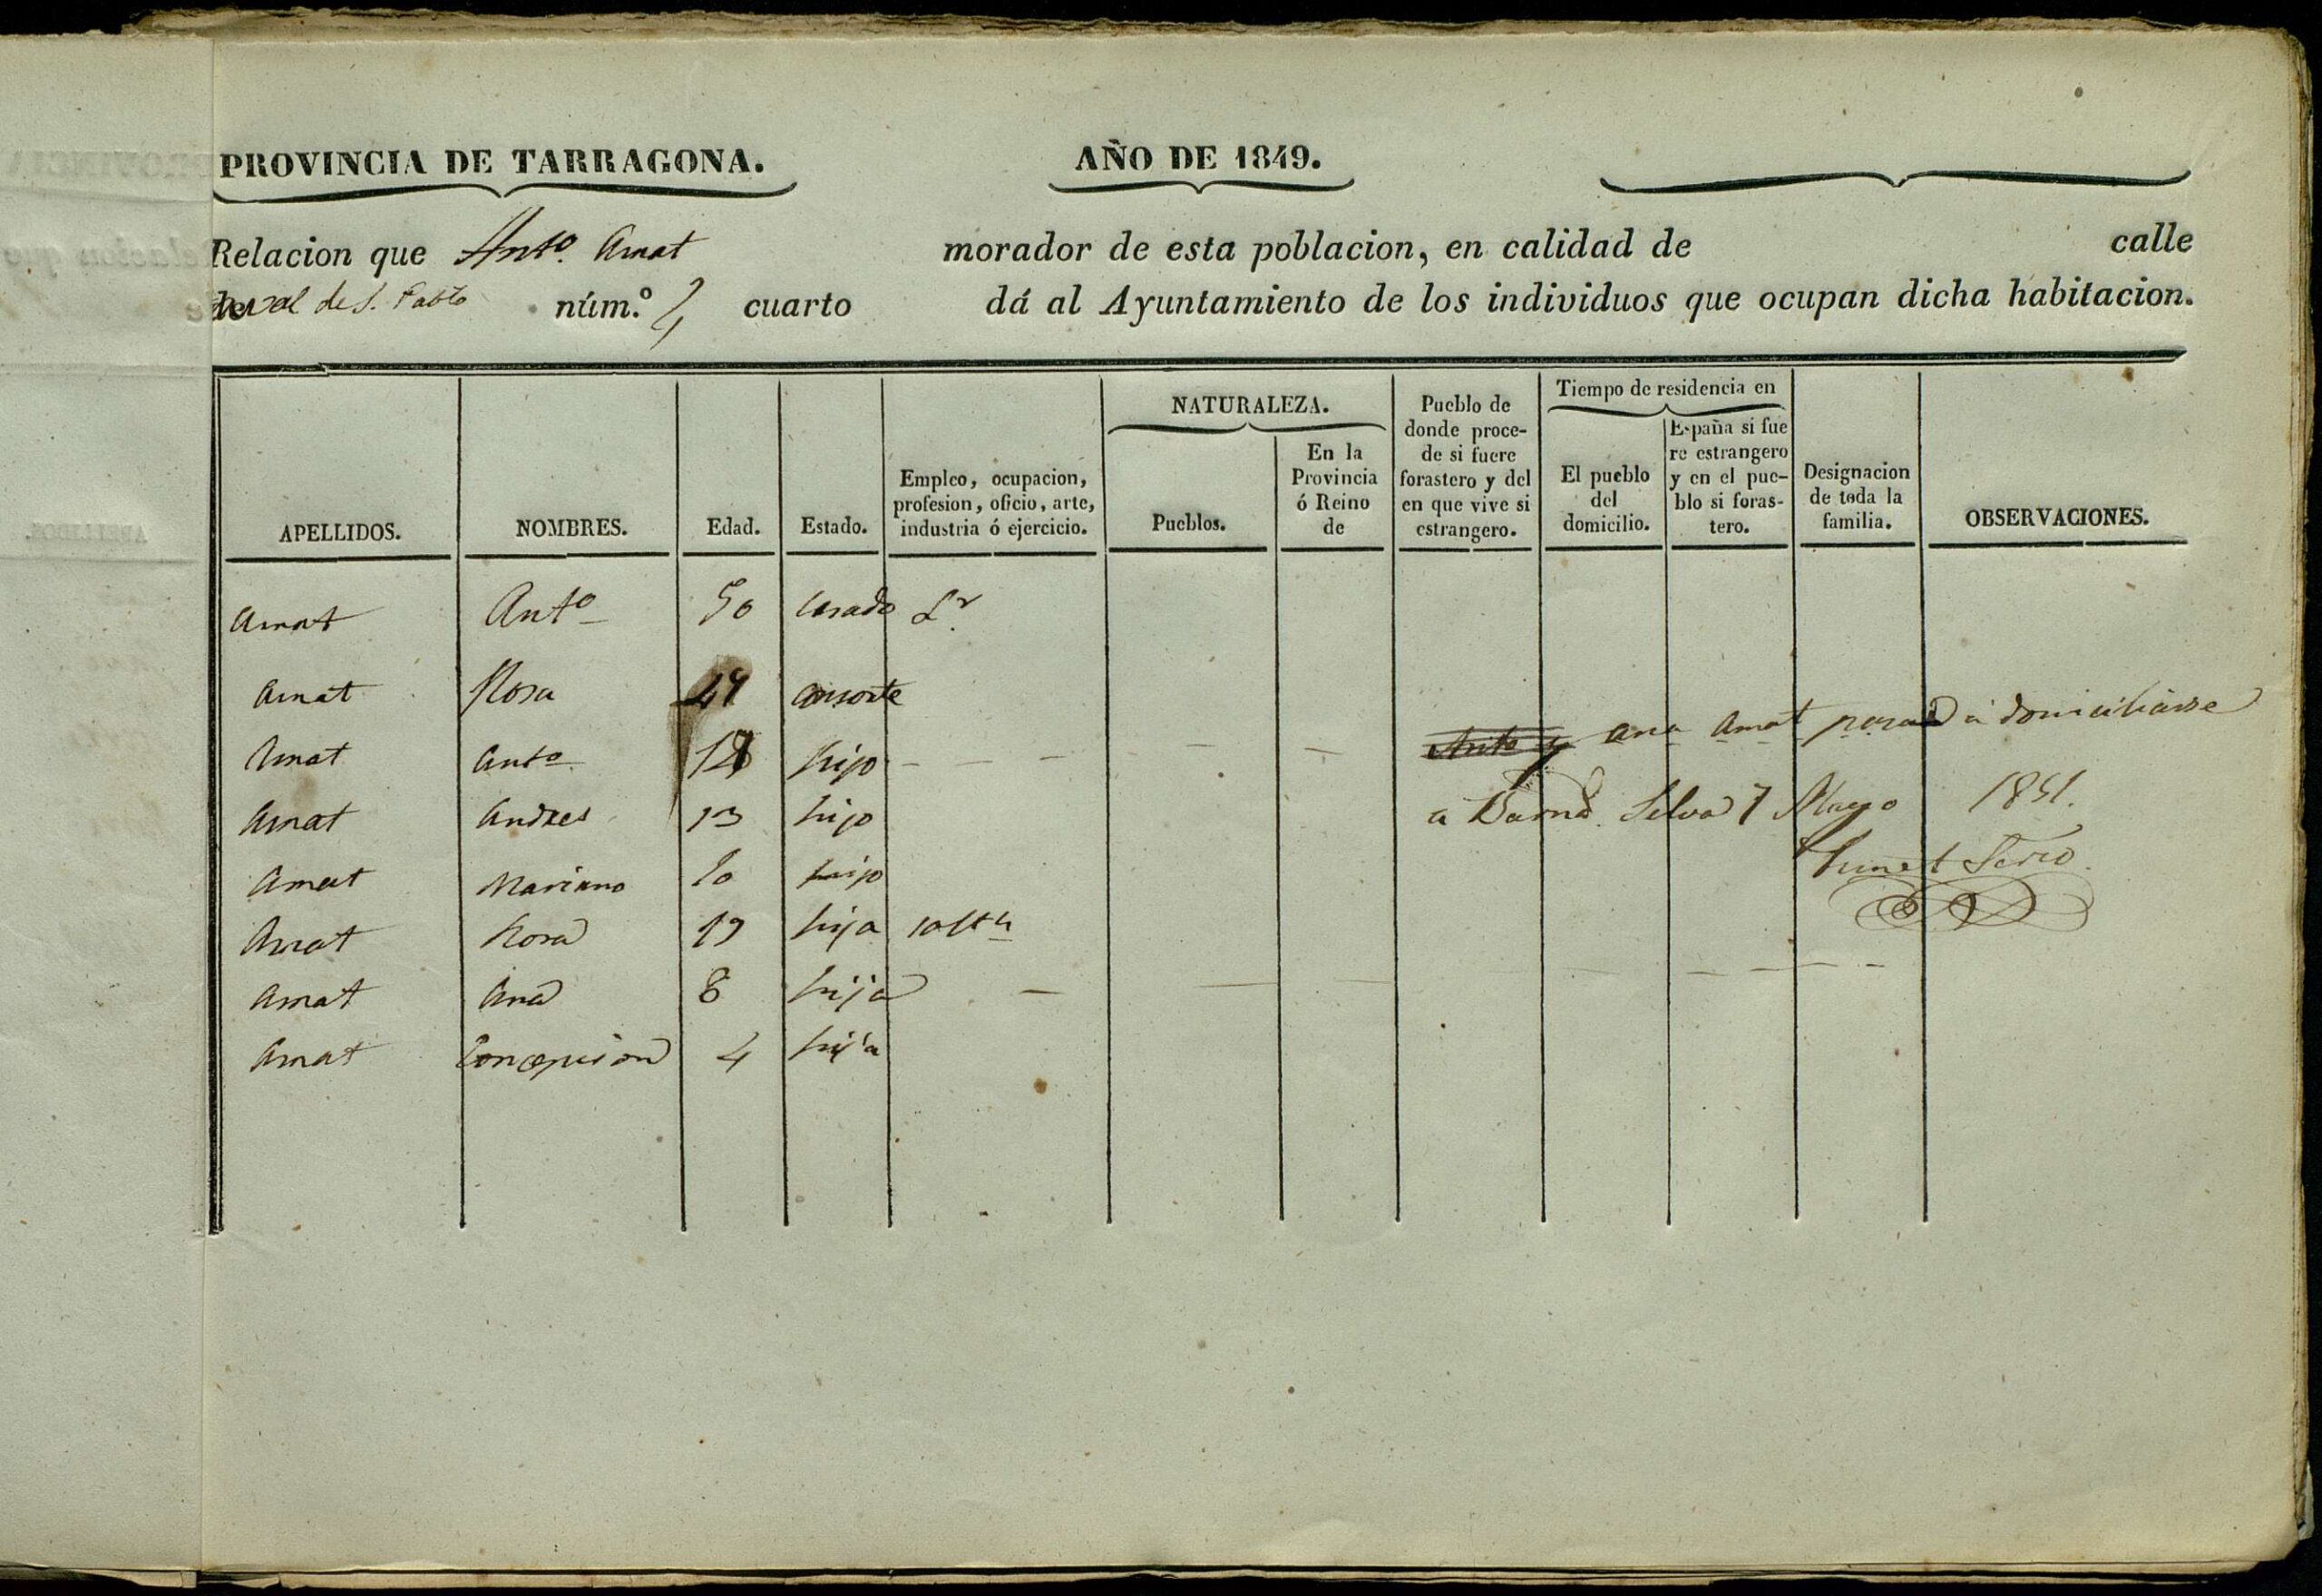 PROVINCIA DE TARRAGONA. AÑO DE 1849.
Relacion que Antº. Amat morador de esta poblacion, en calidad de calle
de S. Pablo núm.º cuarto dá al Ayuntamiento de los individuos que ocupan dicha habitacion.
APELLIDOS.
NOMBRES.
Edad.
Estado.
Empleo, ocupacion,
profesion, oficio, arte,
industria ó ejercicio.
NATURALEZA.
Pueblos.
En la
Provincia
ó Reino
de
Pueblo de
donde proce-
de si fuere
forastero y del
en que vive si
estrangero.
Tiempo de residencia en
El pueblo
del
domicilio.
España si fue
re estrangero
y en el pue-
blo si foras-
tero.
Designacion
de toda la
familia.
OBSERVACIONES.
Amat Antº 50 casado Lr.
Amat Rosa consorte
Amat Antº hijo
Amat Andres 13 hijo
Amat Mariano 10 hijo
Amat Rosa 19 hija
Amat Ana 8 hija
Amat Concepcion 4 hija
Anto y Ana Amat pasad a domiciliarse
a Selva 7 Mayo 1851.